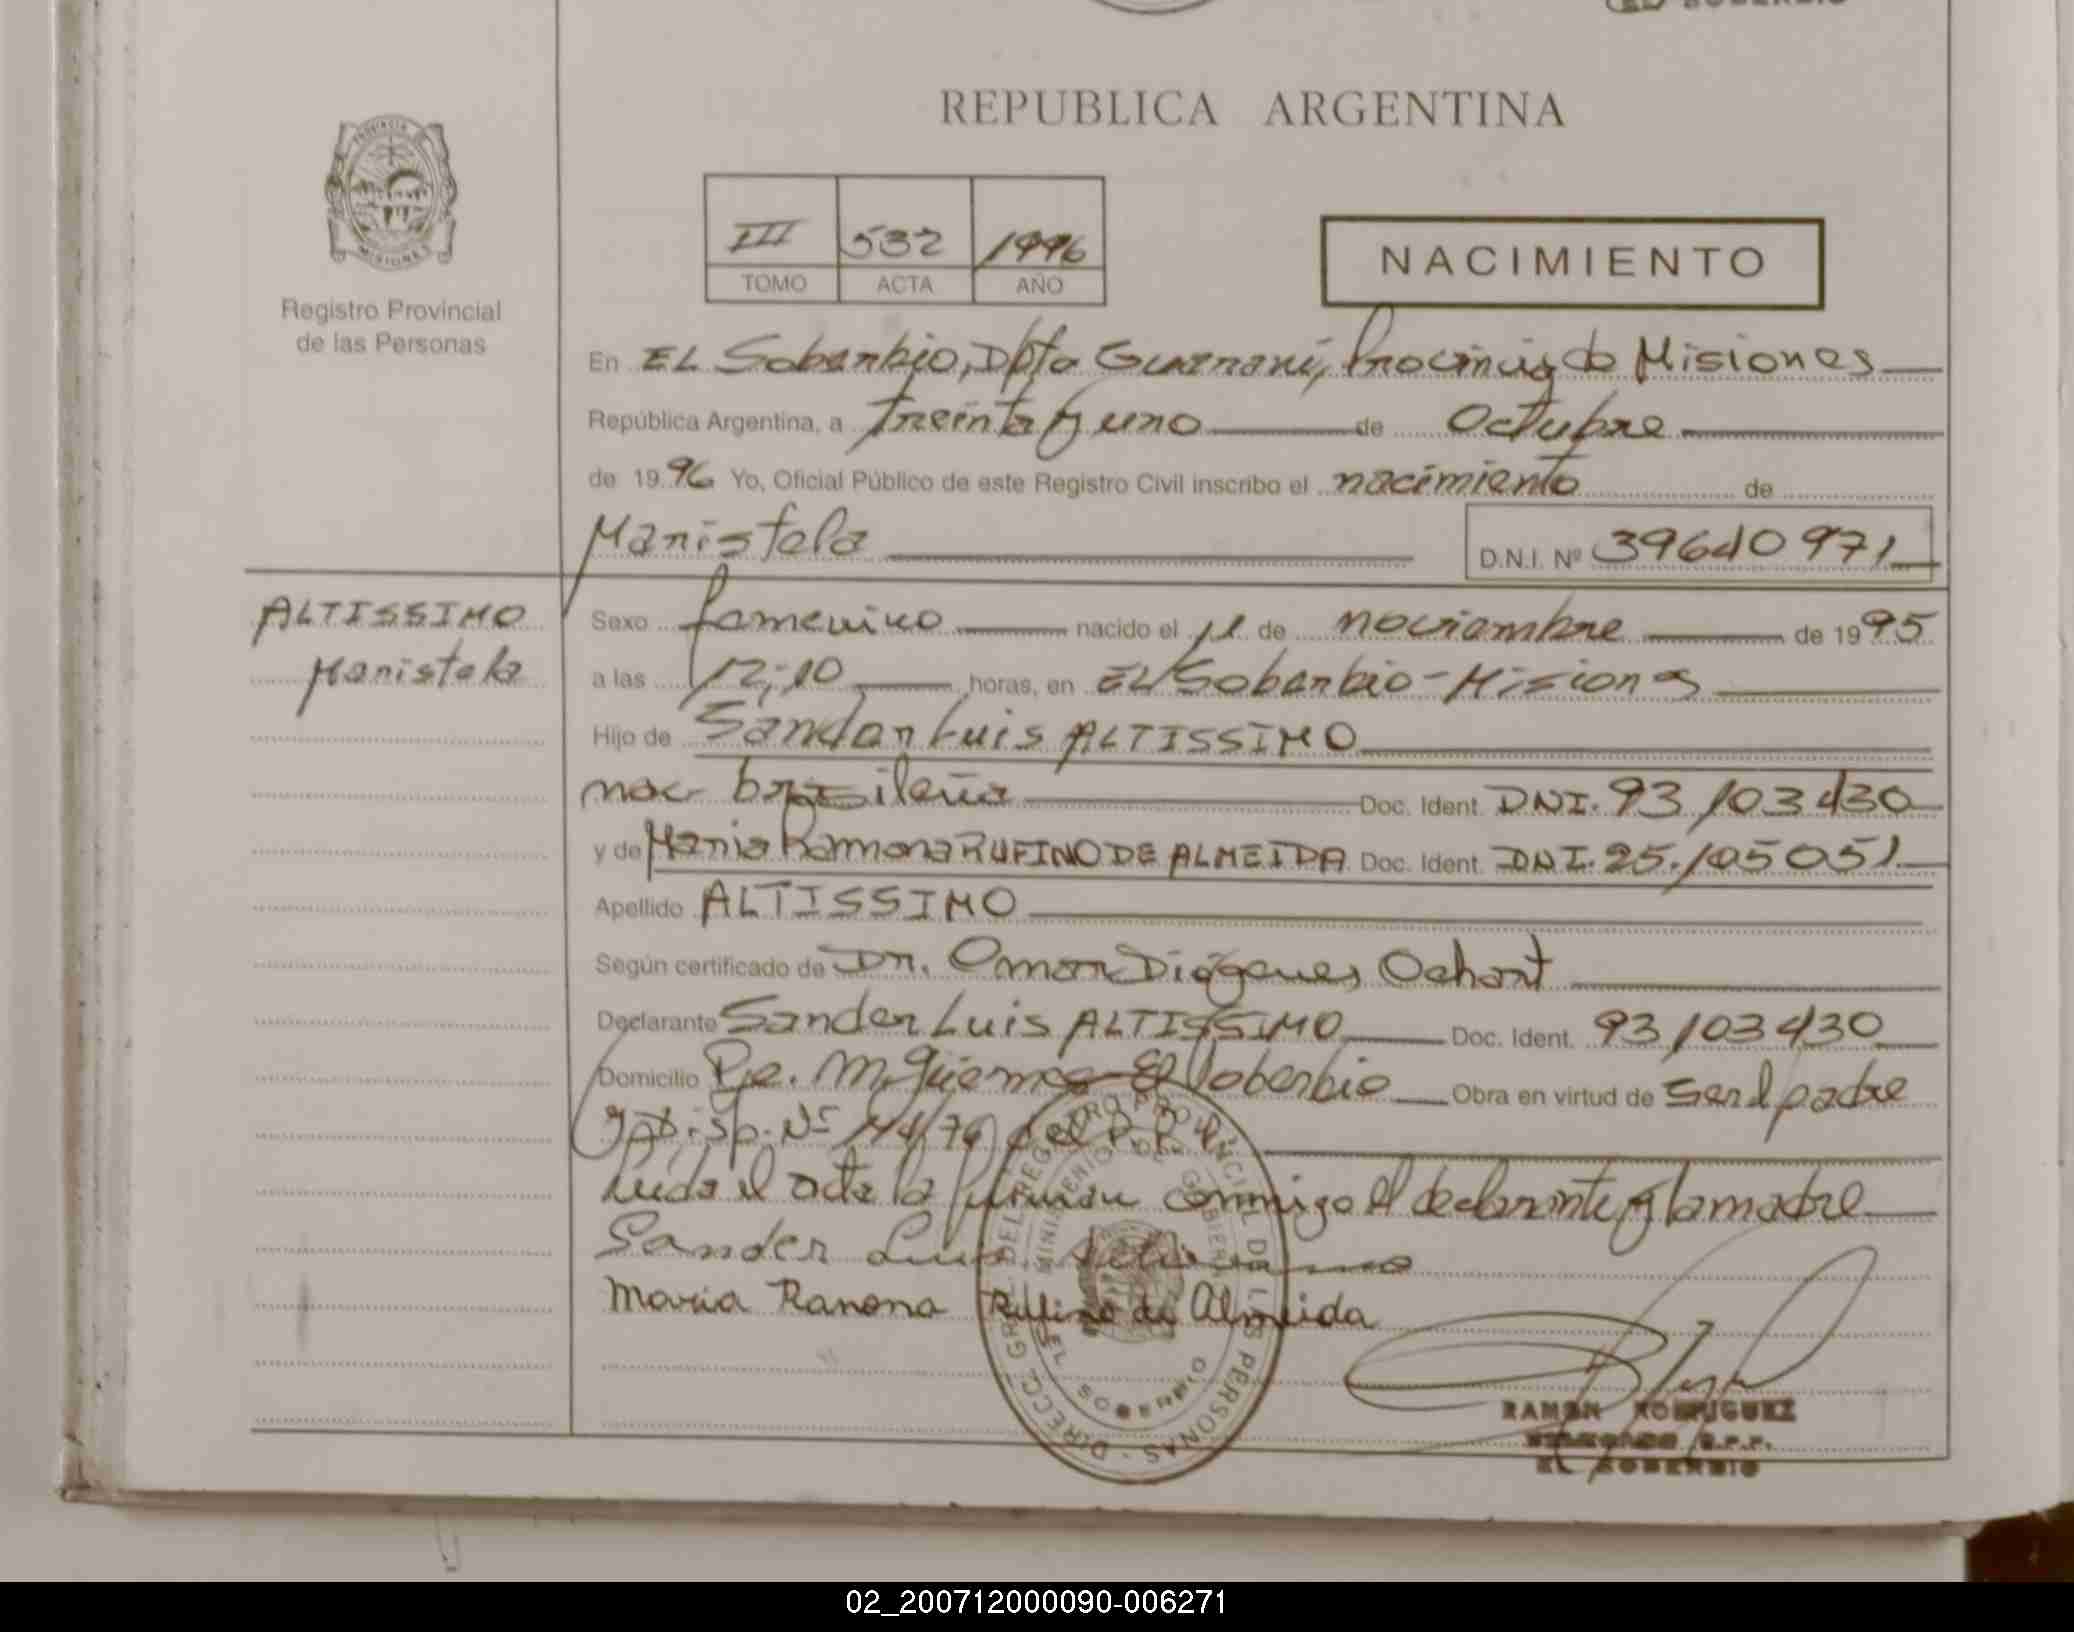 EL SOBERBIO
REPUBLICA ARGENTINA
PROVINCIA
MISIONES
Registro Provincial
de las Personas
III 532 1996
TOMO ACTA AÑO
NACIMIENTO
En EL Soberbio, Dpto Guarani, Provincia de Misiones
República Argentina, a treinta y uno de Octubre
de 1996 Yo, Oficial Público de este Registro Civil inscribo el nacimiento de
Maristela D.N.I. Nº 39640971
ALTISSIMO
Maristela
Sexo femenino nacido el 11 de noviembre de 1995
a las 12,10 horas, en EL Soberbio-Misiones
Hijo de Sander Luis ALTISSIMO
nac brasileña Doc. Ident. DNI. 93103430
y de Maria Ramona RUFINO DE ALMEIDA Doc. Ident. DNI. 25.105051
Apellido ALTISSIMO
Según certificado de Dr. Omar Diógenes Ochart
Declarante Sander Luis ALTISSIMO Doc. Ident. 93103430
Domicilio Pje. M. Güemes-El Soberbio Obra en virtud de ser el padre
y Disp. Nº 14/76 del R.P.P.
Leida el acta la firman conmigo el declarante y la madre
Sander Luis Altissimo
Maria Ramona Rufino de Almeida
DIRECC. GRAL. DEL REGISTRO PROVINCIAL DE LAS PERSONAS
MINISTERIO DE GOBIERNO
EL SOBERBIO
RAMON RODRIGUEZ
R.P.P.
EL SOBERBIO
02_200712000090-006271